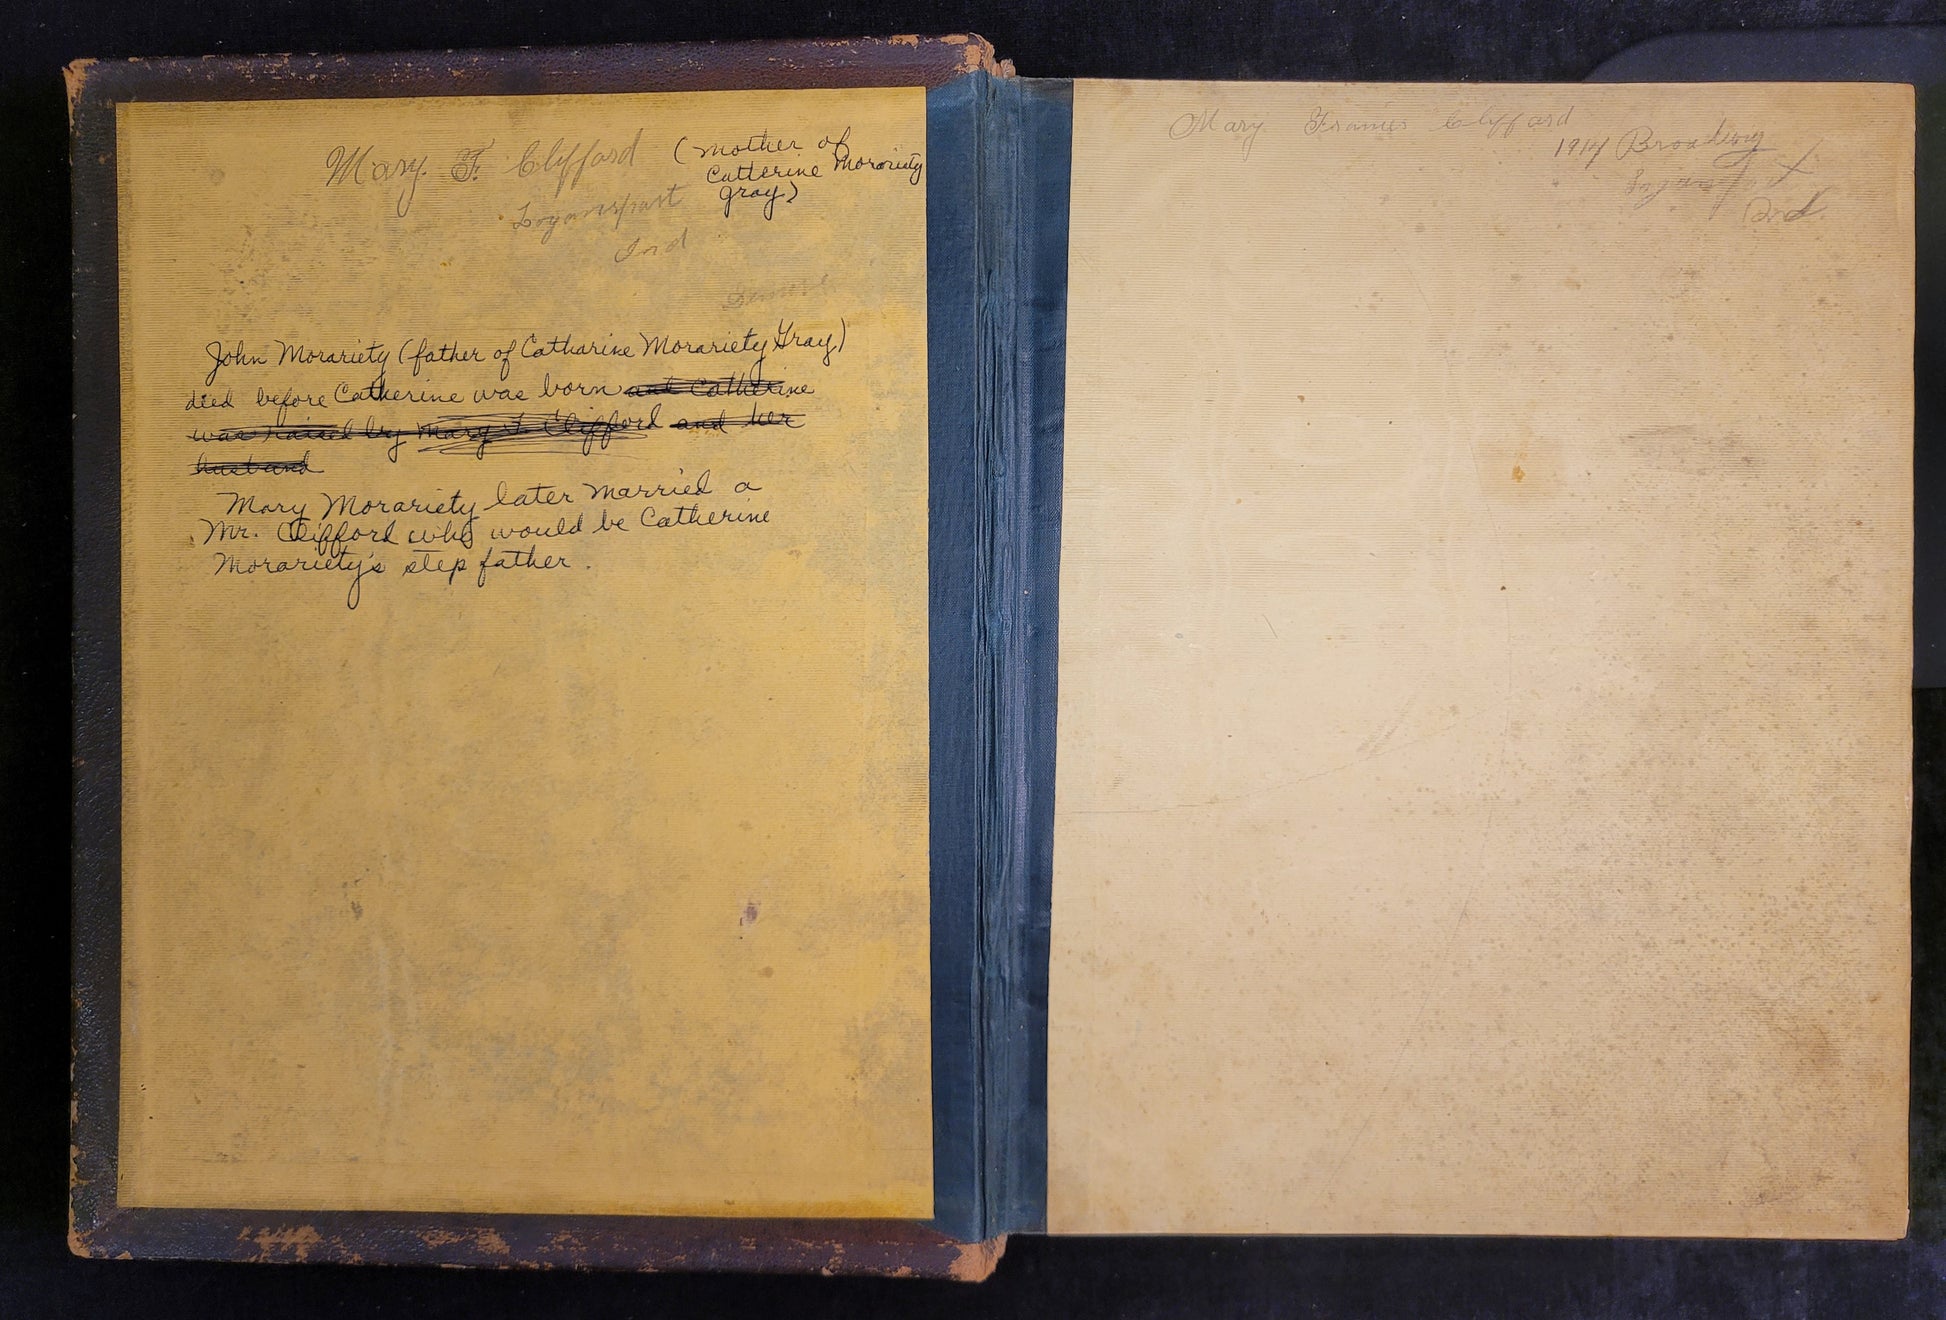 Mary. F. Clyfford
(Mother of
Catterine Morariety
Gray)
Logansport
Ind
John Morariety (father of Catharine Morariety Gray)
died before Catherine was born and Catherine
was raised by Mary F. Clifford and her
husband
Mary Morariety later married a
Mr. Clifford who would be Catherine
Morariety's step father.
Mary Francis Clyfford
1914 Broadway
Logansport
Ind.